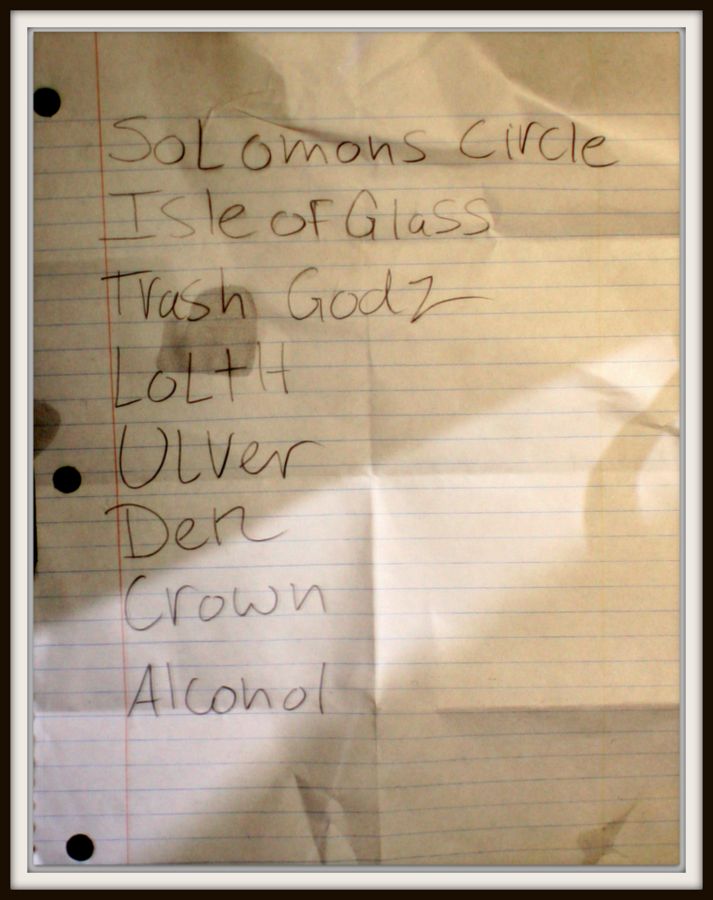 SoLomons Circle
Isle of Glass
Trash Godz
LoLtH
ULVer
Den
Crown
Alcohol